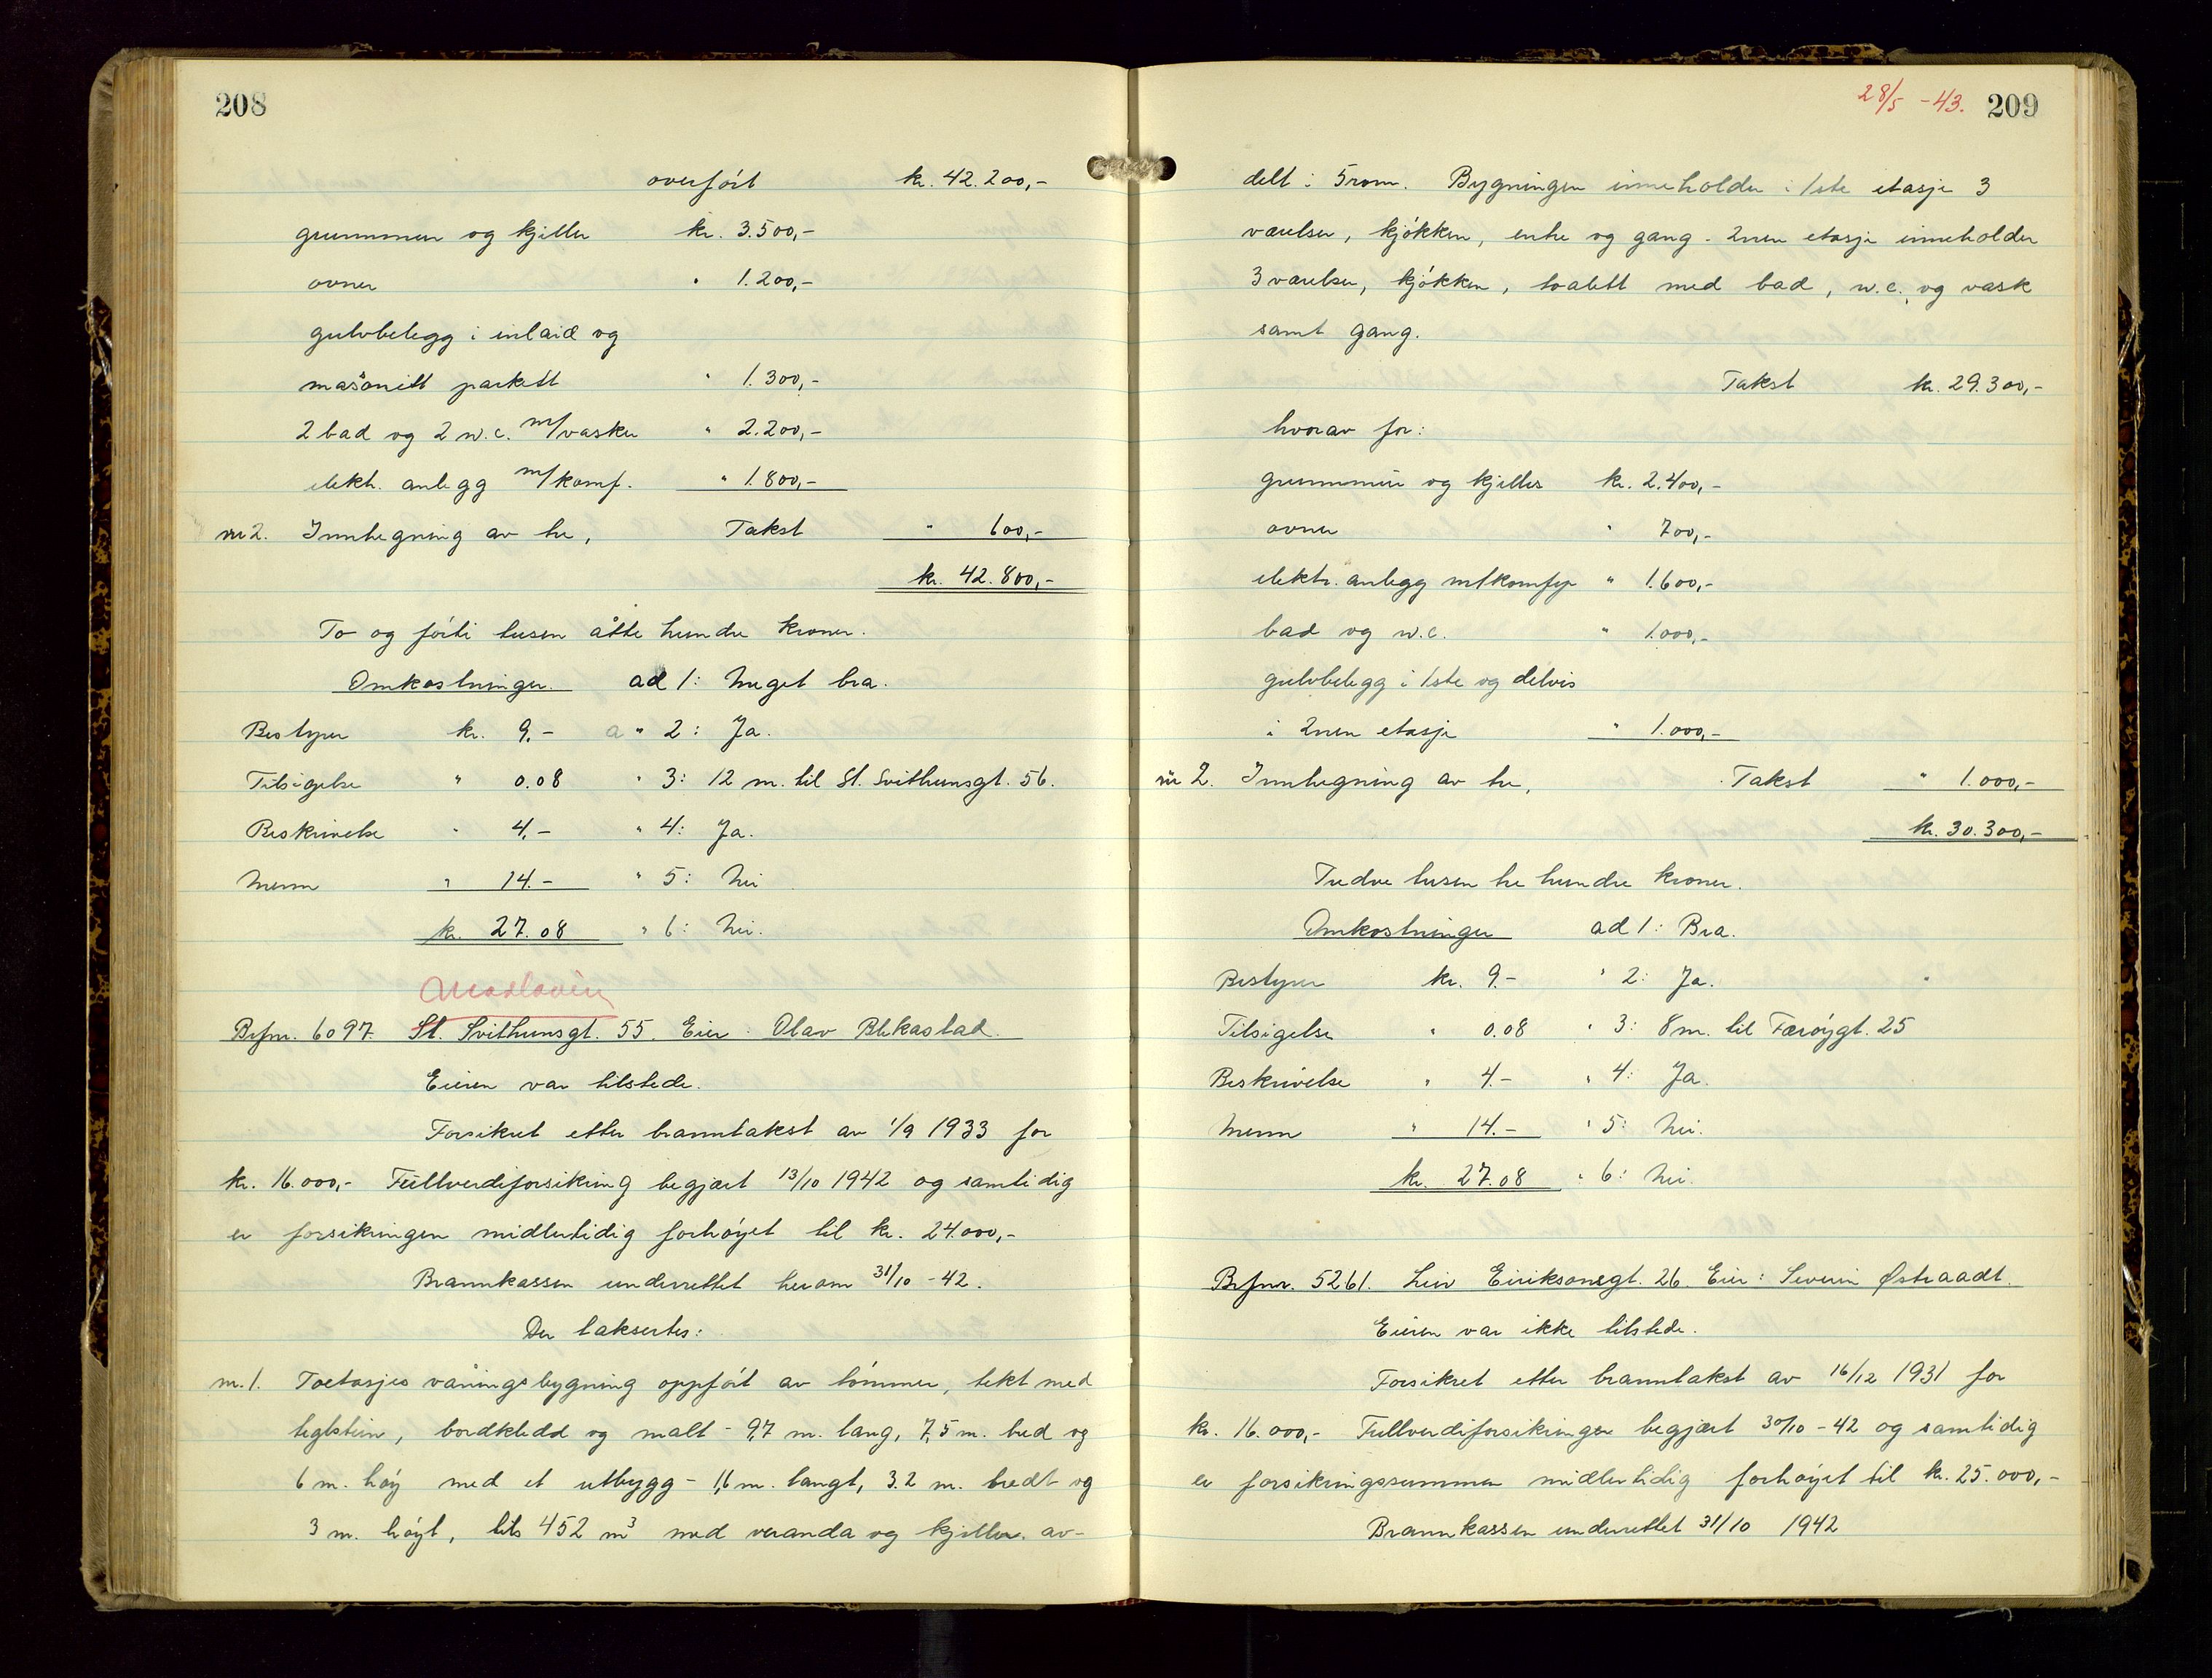 208
overført kr. 42.200,-
grunnmur og kjeller kr. 3.500,-
ovner " 1.200,-
gulvbelegg i inlaid og
masonitt parkett " 1.300,-
2 bad og 2 w.c. m/vasker " 2.200,-
elektr. anlegg m/komf. " 1.800,-
nr 2. Innhegning av tre, Takst " 600,-
kr. 42.800,-
To og førti tusen åtte hundre kroner.
Omkostninger. ad 1: Meget bra.
Bestyrer kr. 9.- " 2: Ja.
Tilsigelse " 0.08 " 3: 12 m. til St. Svithunsgt. 56.
Beskrivelse " 4.- " 4: Ja.
Menn " 14.- " 5: Nei
kr. 27.08 " 6: Nei.
Brfnr. 6097. St. Svithunsgt. 55. Eier: Olav Blikastad.
Eieren var tilstede.
Forsikret etter branntakst av 1/9 1933 for
kr. 16.000,- Fullverdiforsikring begjært 13/10 1942 og samtidig
er forsikringen midlertidig forhøyet til kr. 24.000,-
Brannkassen underrettet herom 31/10 -42.
Der taksertes:
nr. 1. Toetasjes våningsbygning oppført av tømmer, tekt med
teglstein, bordkledd og malt - 9,7 m. lang, 7,5 m. bred og
6 m. høy med et utbygg - 1,6 m. langt, 3.2 m. bredt og
3 m. høyt, tils 452 m³ med veranda og kjeller. av-
28/5 -43. 209
delt i 5 rom. Bygningen inneholder i 1ste etasje 3
værelser, kjøkken, entre og gang. 2nen etasje inneholder
3 værelser, kjøkken, toalett med bad, w.c. og vask
samt gang.
Takst kr. 29.300,-
hvorav for:
grunnmur og kjeller kr. 2.400,-
ovner " 700,-
elektr. anlegg m/komfyr " 1.600,-
bad og w.c. " 1.000,-
gulvbelegg i 1ste og delvis
i 2nen etasje " 1.000,-
nr 2. Innhegning av tre, Takst " 1.000,-
kr. 30.300,-
Tredve tusen tre hundre kroner.
Omkostninger ad 1: Bra.
Bestyrer kr. 9.- " 2: Ja.
Tilsigelse " 0.08 " 3: 8 m. til Færøygt. 25
Beskrivelse " 4.- " 4: Ja.
Menn " 14.- " 5: Nei.
kr. 27.08 " 6: Nei.
Brfnr. 5261. Leiv Eiriksonsgt. 26. Eier: Severin Østraadt.
Eieren var ikke tilstede.
Forsikret etter branntakst av 16/12 1931 for
kr. 16.000,- Fullverdiforsikringen begjært 30/10 -42 og samtidig
er forsikringssummen midlertidig forhøyet til kr. 25.000,-
Brannkassen underrettet 31/10 1942